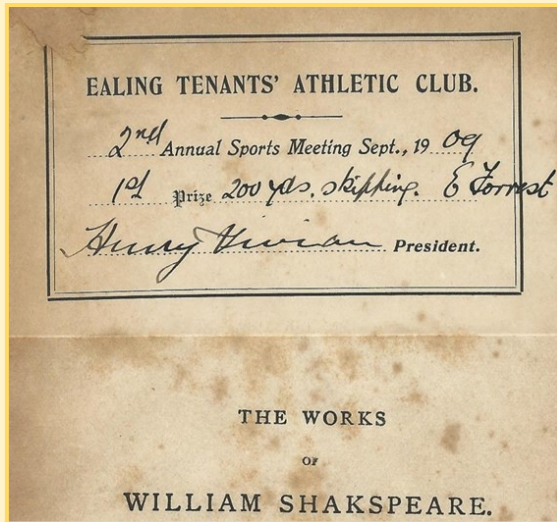 EALING TENANTS' ATHLETIC CLUB.
2nd Annual Sports Meeting Sept., 1909
1st Prize 200 yds. skipping. E Forrest
Henry Vivian President.
THE WORKS
OF
WILLIAM SHAKSPEARE.